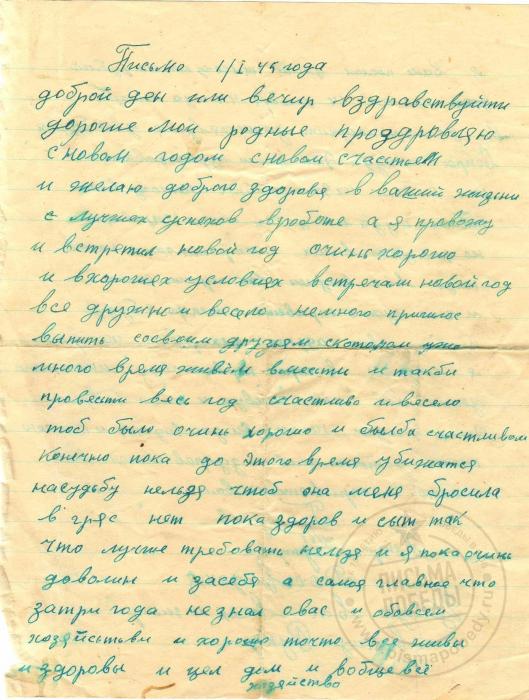 Письмо 1/I 45 года
доброй ден или вечир вздравствуйти
дорогие мои родные проддровляю
с новом годом с новом счастьем
и желаю доброго здоровя в вашей жизни
с лучшех успехов вроботе а я провожу
и встретил новой год очинь хорошо
и вхорошех условиях встречали новой год
все дружно и весело немного пришлос
выпить сосвоим друзьям скотором уже
много время живём вмести и такби
провести весь год счастливо и весело
тоб было очинь хорошо и былбы счастливом
конечно пока до этого время убижатся
насудьбу нельзя чтоб она меня бросила
в гряс нет пока здоров и сыт так
что лучше требовать нелзя и я пока очинь
доволин и засебя а самое главное что
затри года не знал овас и обовсем
хозяйстьви и хорошо точто все живы
и здоровы и цел дом и вобще всё
хозяйство
ПИСЬМА ПОБЕДЫ
www.pismapobedy.ru